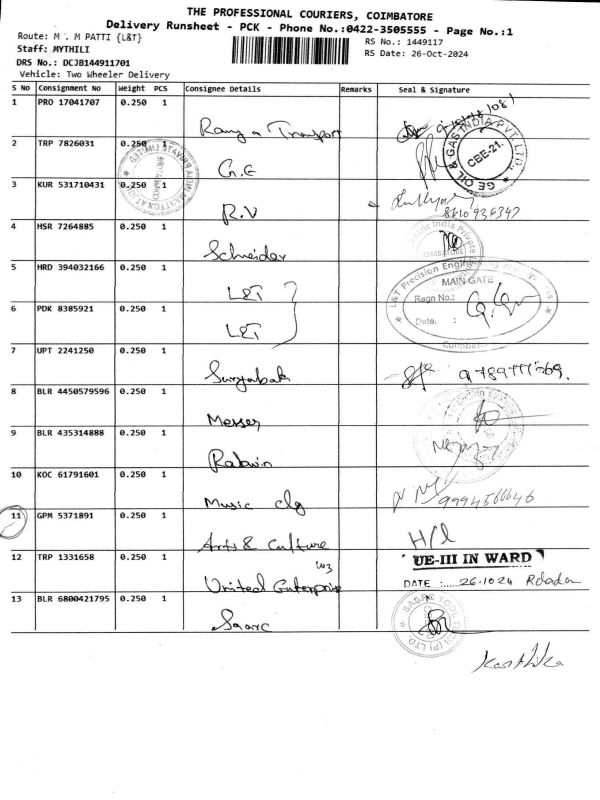 THE PROFESSIONAL COURIERS, COIMBATORE
Delivery Runsheet - PCK - Phone No.:0422-3505555 - Page No.:1
Route: M . M PATTI {L&T}
RS No.: 1449117
Staff: MYTHILI
RS Date: 26-Oct-2024
DRS No.: DCJB144911701
Vehicle: Two Wheeler Delivery
S No Consignment No Weight PCS Consignee Details Remarks Seal & Signature
1 PRO 17041707 0.250 1
Transport
2 TRP 7826031 0.250 1
G.E
GE OIL & GAS INDIA PVT LTD. CBE-21.
3 KUR 531710431 0.250 1
R.V
8610936347
4 HSR 7264885 0.250 1
Schneider
Electric India Private
COIMBATORE
5 HRD 394032166 0.250 1
L&T
L&T Precision Engineering
MAIN GATE
Regn No.:
Date. :
Coimbatore
6 PDK 8385921 0.250 1
L&T
7 UPT 2241250 0.250 1
8 BLR 4450579596 0.250 1
Messer
9 BLR 435314888 0.250 1
10 KOC 61791601 0.250 1
Music clg
9994566646
11 GPM 5371891 0.250 1
Arts & Culture
H/l
12 TRP 1331658 0.250 1
United Enterprise
UE-III IN WARD
DATE :......26.10.24
13 BLR 6800421795 0.250 1
Saarc
Karthika